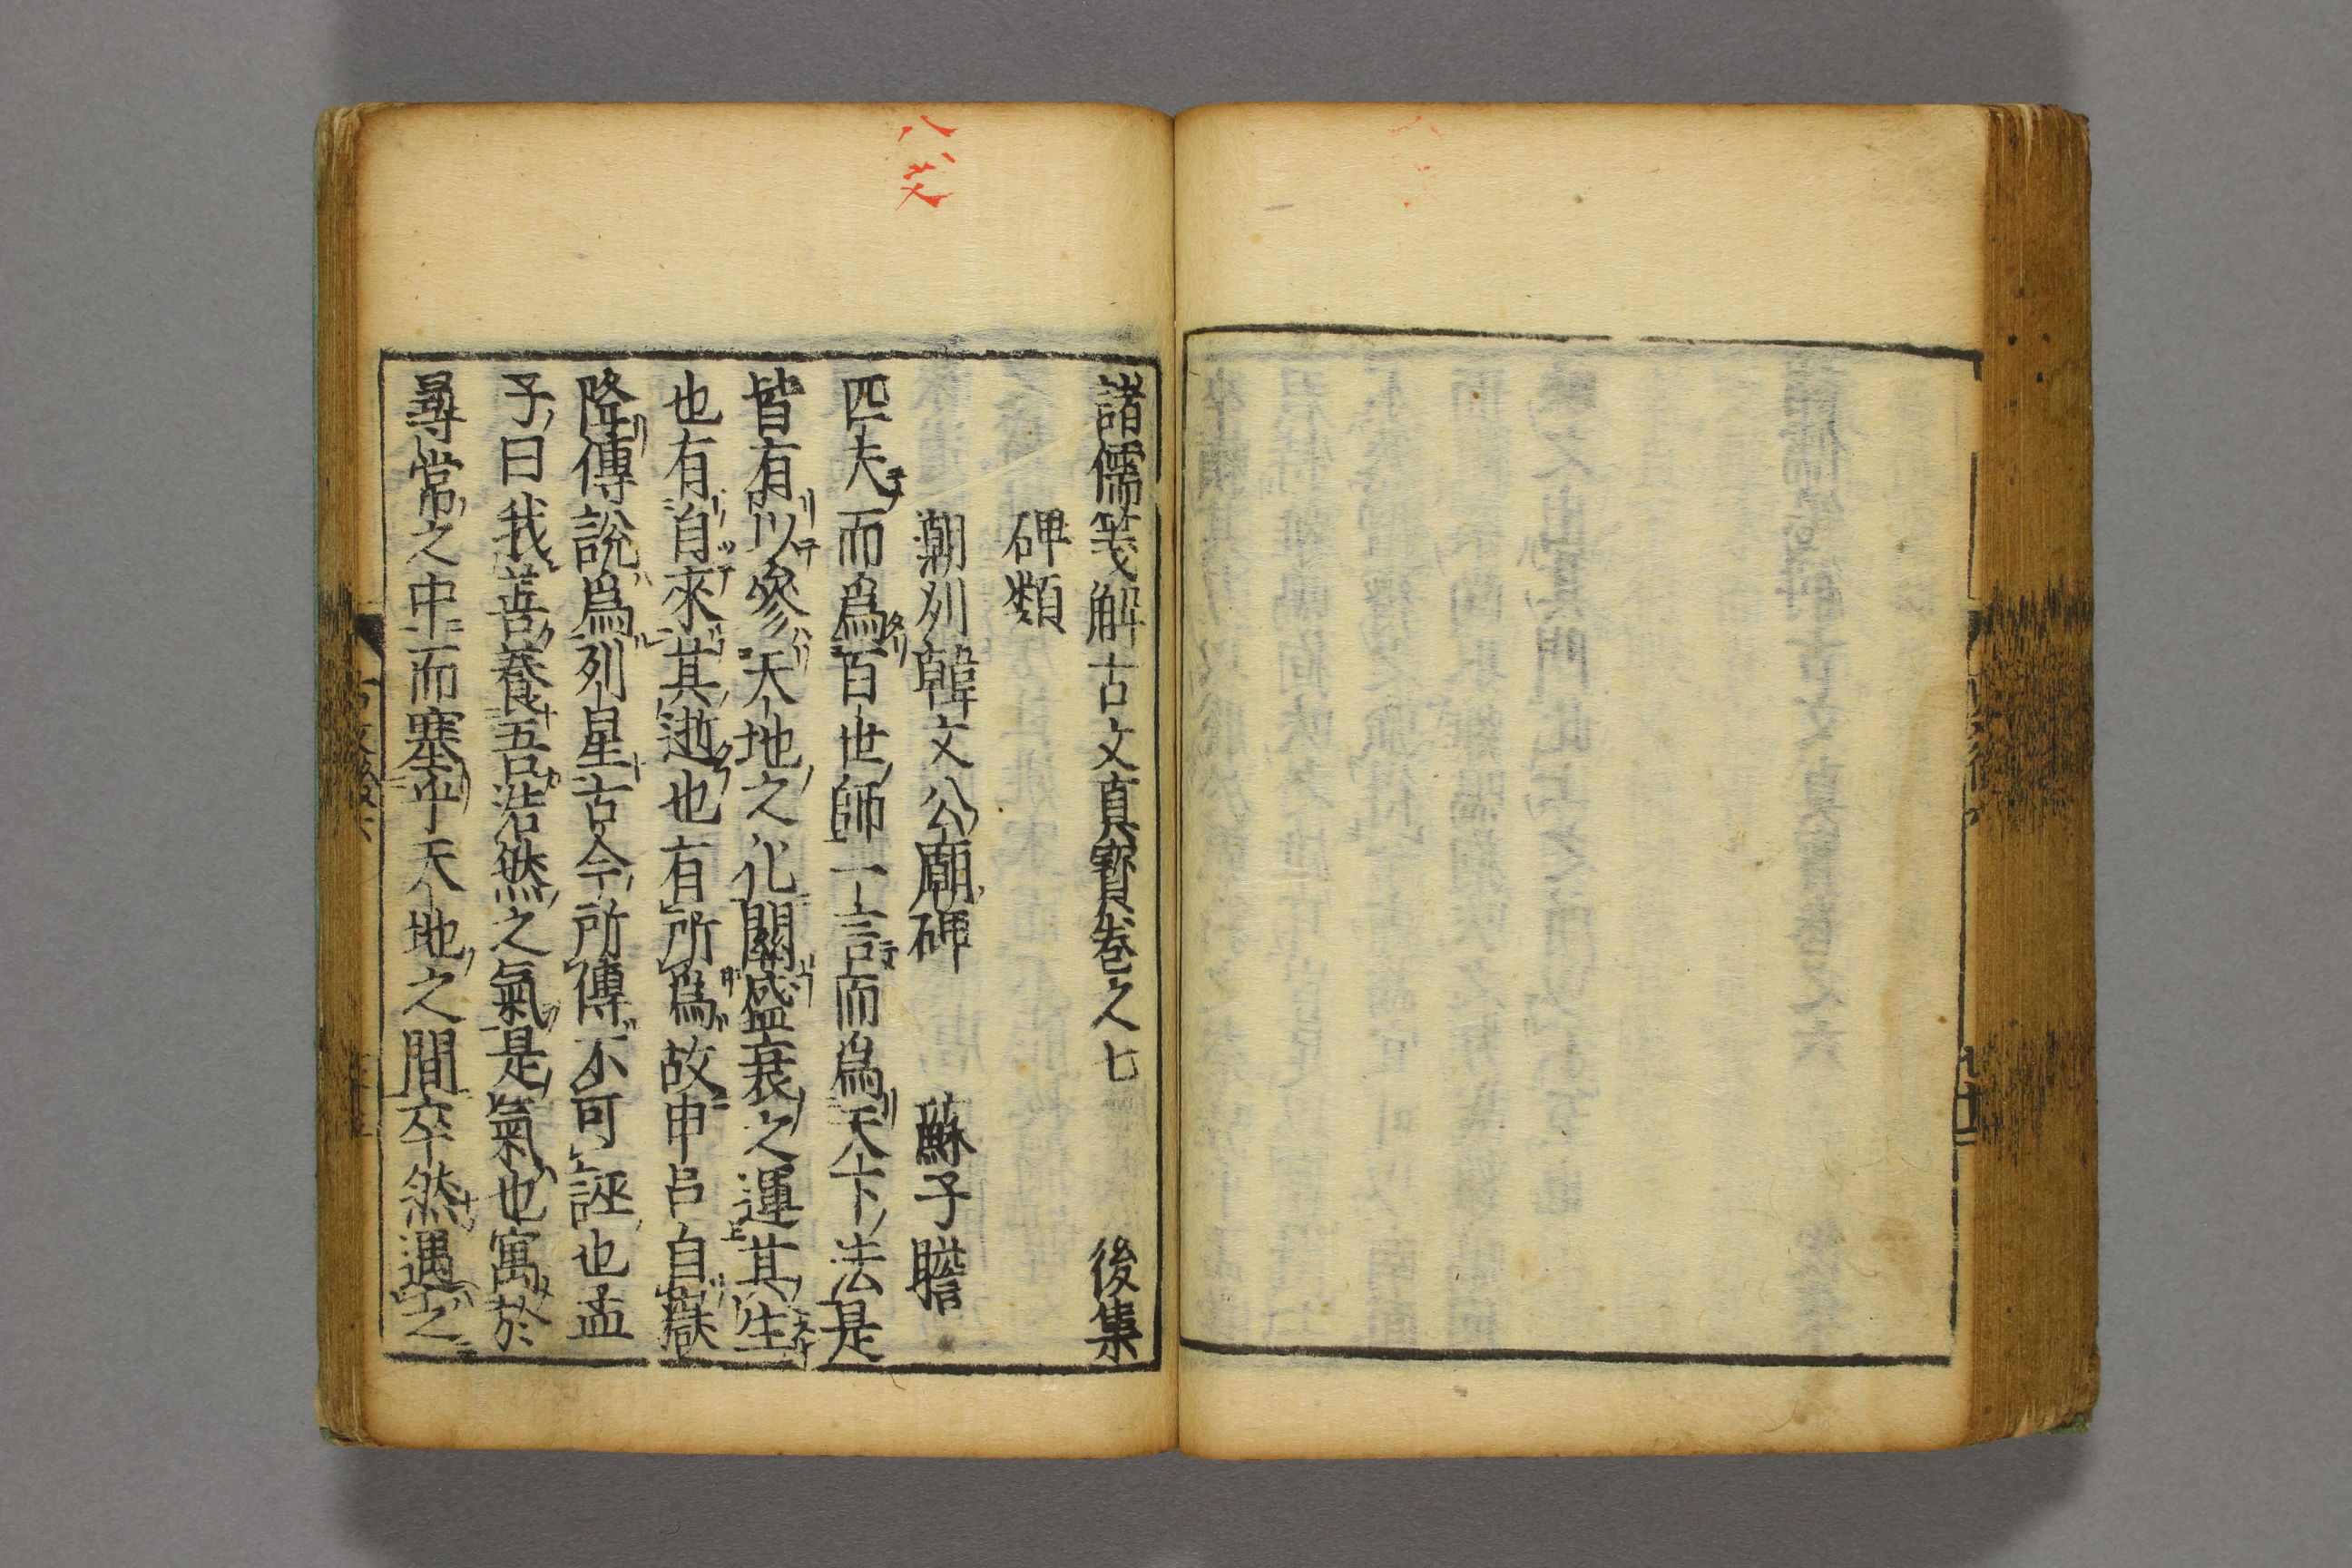 諸儒箋解古文真寳卷之七 後集
碑類
潮州韓文公廟碑 蘇子瞻
匹夫而爲百世師一言而爲天下法是
皆有以參天地之化關盛衰之運其生
也有自來其逝也有所爲故申呂自嶽
降傅說爲列星古今所傳不可誣也孟
子曰我善養吾浩然之氣是氣也寓於
尋常之中而塞乎天地之間卒然遇之